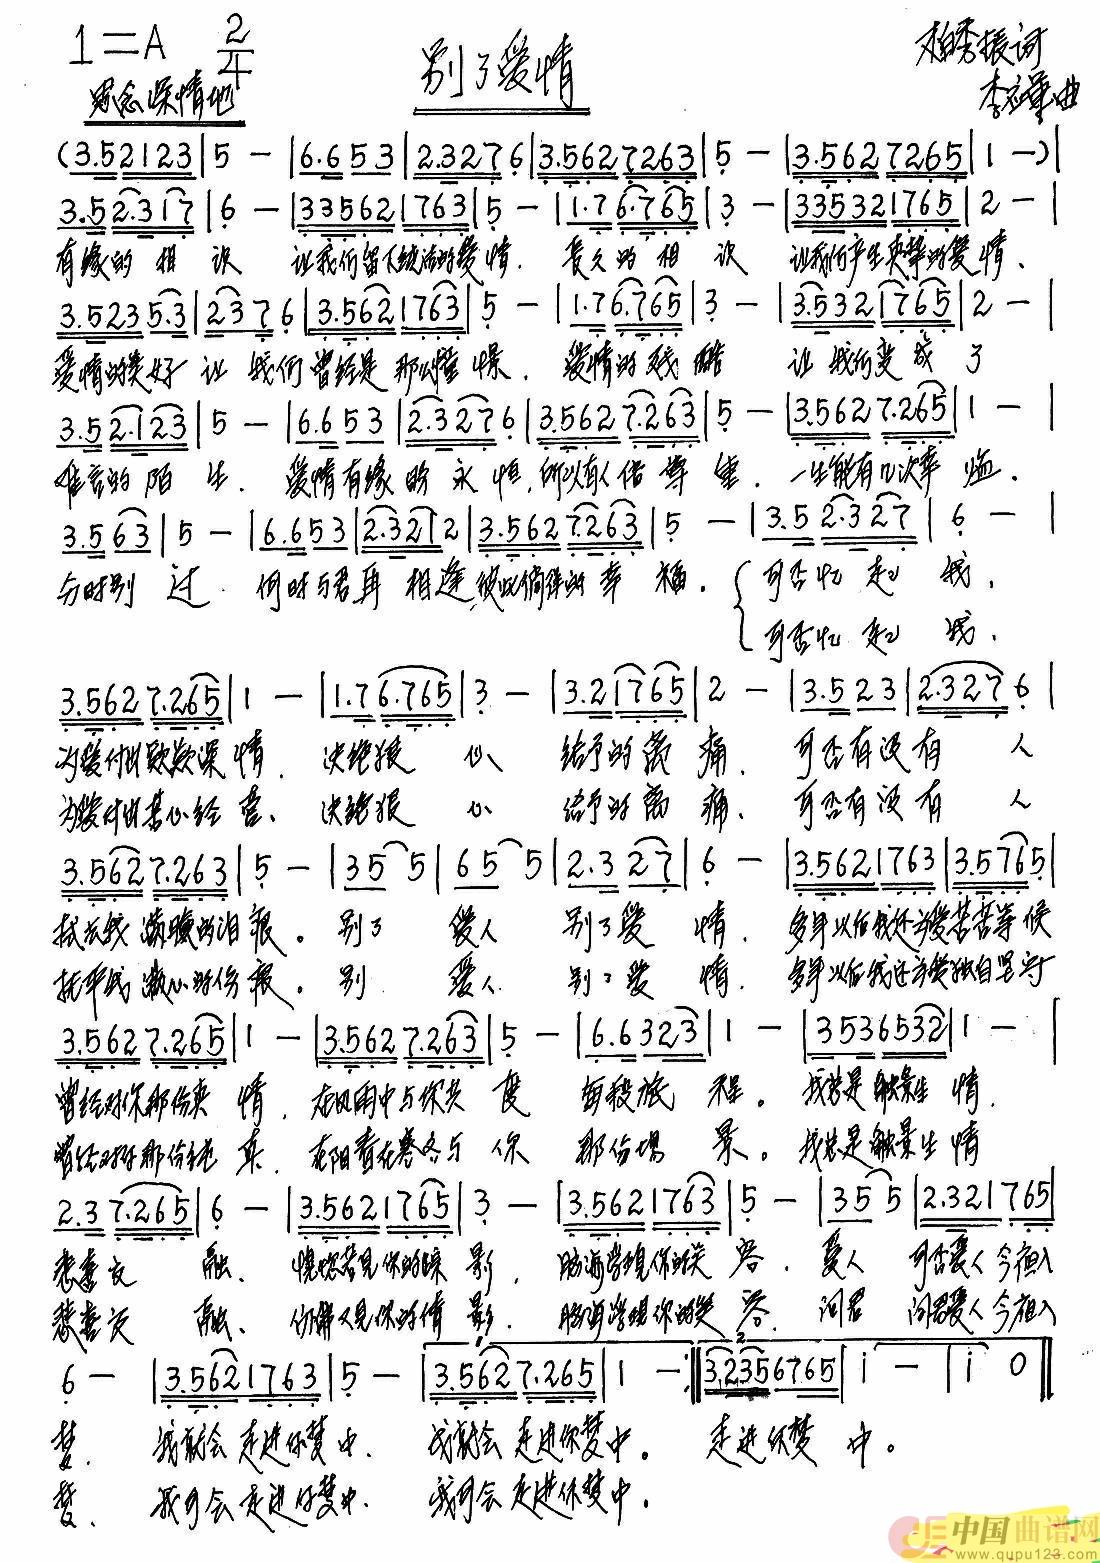 1=A 2/4
别了爱情
柏秀振词
思念深情地
曲
(3.52123|5 -|6.653|2.3276|3.5627263|5 -|3.5627265|1 -)|
3.52.317|6 -|335621763|5 -|1.76.765|3 -|335321765|2 -|
有缘的相识 让我们留下纯洁的爱情. 长久的相识 让我们产生真挚的爱情.
3.5235.3|2376|3.5621763|5 -|1.76.765|3 -|3.5321765|2 -|
爱情的美好让我们曾经是那么憧憬. 爱情的残酷 让我们变成了
3.52.123|5 -|6.653|2.3276|3.5627.263|5 -|3.5627.265|1 -|
难言的陌生. 爱情有缘的永恒,所以有人倍尊重. 一生能有几次幸运.
3.563|5 -|6.653|2.3212|3.5627.263|5 -|3.52.327|6 -|
与时别过. 何时与君再相逢,彼此倘徉的幸福. 可否忆起 我.
可否忆起 我.
3.5627.265|1 -|1.76.765|3 -|3.21765|2 -|3.523|2.3276|
为爱付出款款深情. 决绝狠心 给予的离痛. 可否有没有人
为爱付出苦心经营. 决绝狠心 给予的离痛. 可否有没有人
3.5627.263|5 -|355|655|2.327|6 -|3.5621763|3.5765|
拭去我满腮的泪痕。别了 爱人 别了爱情. 多年以后我还为爱苦苦等候
抚平我满心的伤痕。别 爱人 别了爱情. 多年以后我还为爱独自坚守
3.5627.265|1 -|3.5627.263|5 -|6.6323|1 -|3536532|1 -|
曾经对你那份真情. 在风雨中与你共度 每段旅程。我总是触景生情.
曾经对你那份纯真. 在阳春在寒冬与你 那份场景。我总是触景生情
2.37.265|6 -|3.5621765|3 -|3.5621763|5 -|355|2.321765|
悲喜交融. 恍惚若见你的踪影. 脑海学现你的笑容. 爱人 可否爱人今夜入
悲喜交融. 仿佛又见你的倩影. 脑海学现你的笑容. 问君 问君爱人今夜入
6 -|3.5621763|5 -|3.5627.265|1 -:‖3.2356765|i -|i 0‖
梦. 我就会走进你梦中. 我就会走进你梦中。 走进你梦中。
梦. 我可会走进你梦中. 我可会走进你梦中。
中国曲谱网
www.qupu123.com